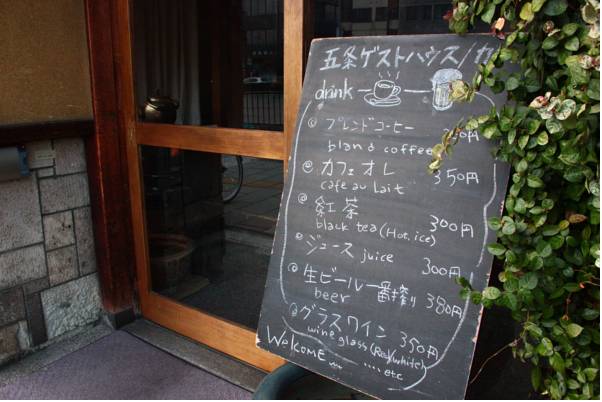 五条ゲストハウス/カ
drink
ブレンドコーヒー
bland coffee
カフェオレ 350円
cafe au Lait
紅茶 300円
black tea (Hot. ice)
ジュース juice 300円
生ビール 一番搾り 380円
beer
グラスワイン 350円
wine glass (Red/white)
Welcome .... etc